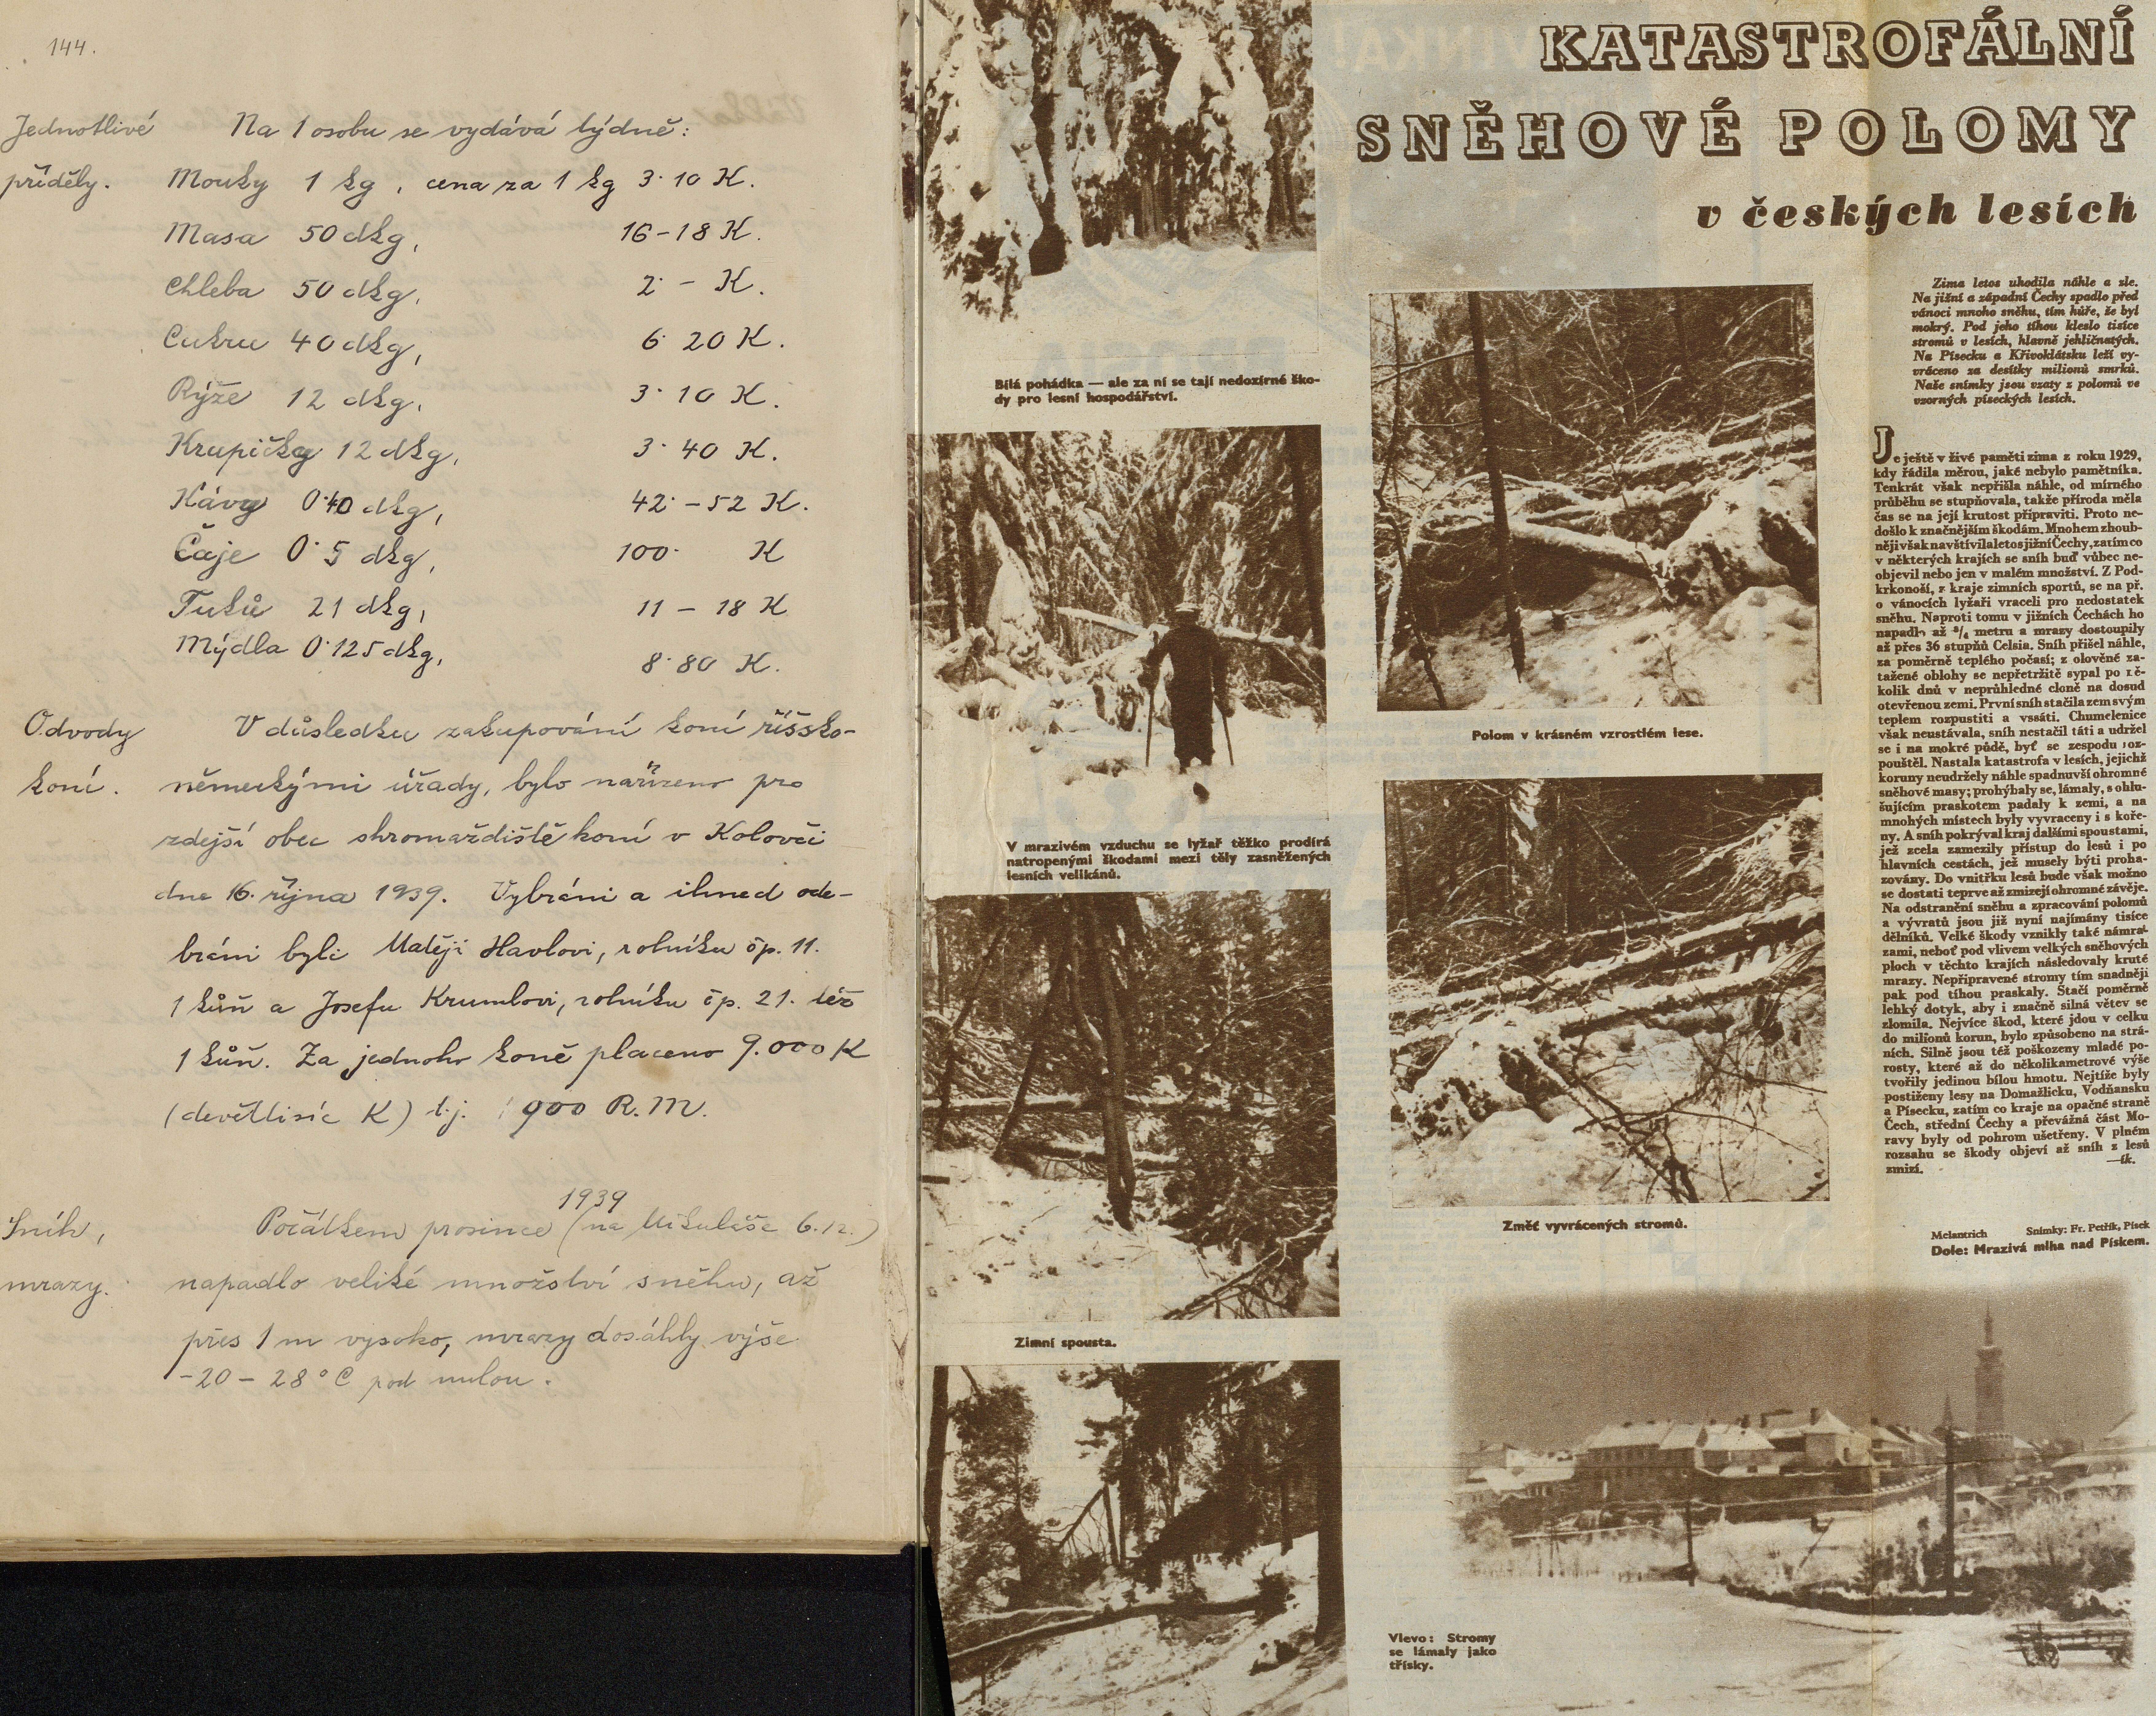 144.
Jednotlivé příděly.
Na 1 osobu se vydává týdně:
Mouky 1 kg, cena za 1 kg 3·10 K.
Masa 50 dkg, 16-18 K.
Chleba 50 dkg, 2·- K.
Cukru 40 dkg, 6·20 K.
Rýže 12 dkg, 3·10 K.
Krupičky 12 dkg, 3·40 K.
Kávy 0·40 dkg, 42·-52 K.
Čaje 0·5 dkg, 100· K
Tuků 21 dkg, 11 - 18 K
Mýdla 0·125 dkg, 8·80 K.
Odvody koní.
V důsledku zakupování koní říšsko-
německými úřady, bylo nařízeno pro
zdejší obec shromaždiště koní v Kolovči
dne 16. října 1939. Vybráni a ihned ode-
bráni byli Matěji Havlovi, rolníku čp. 11.
1 kůň a Josefu Krumlovi, rolníku čp. 21. též
1 kůň. Za jednoho koně placeno 9.000 K
(devěttisíc K) t.j. 900 R.M.
Sníh, mrazy.
1939
Počátkem prosince (na Mikuláše 6.12.)
napadlo veliké množství sněhu, až
přes 1 m vysoko, mrazy dosáhly výše
-20 - 28°C pod nulou.
KATASTROFÁLNÍ
SNĚHOVÉ POLOMY
v českých lesích
Bílá pohádka — ale za ní se tají nedozírné ško-
dy pro lesní hospodářství.
V mrazivém vzduchu se lyžař těžko prodírá
natropenými škodami mezi těly zasněžených
lesních velikánů.
Zimní spousta.
Polom v krásném vzrostlém lese.
Změť vyvrácených stromů.
Vlevo: Stromy
se lámaly jako
třísky.
Zima letos uhodila náhle a zle.
Na jižní a západní Čechy spadlo před
vánoci mnoho sněhu, tím hůře, že byl
mokrý. Pod jeho tíhou kleslo tisíce
stromů v lesích, hlavně jehličnatých.
Na Písecku a Křivoklátsku leží vy-
vráceno za desítky milionů smrků.
Naše snímky jsou vzaty z polomů ve
vzorných píseckých lesích.
Je ještě v živé paměti zima z roku 1929,
kdy řádila měrou, jaké nebylo pamětníka.
Tenkrát však nepřišla náhle, od mírného
průběhu se stupňovala, takže příroda měla
čas se na její krutost připraviti. Proto ne-
došlo k značnějším škodám. Mnohem zhoub-
něji však navštívila letos jižní Čechy, zatím co
v některých krajích se sníh buď vůbec ne-
objevil nebo jen v malém množství. Z Pod-
krkonoší, z kraje zimních sportů, se na př.
o vánocích lyžaři vraceli pro nedostatek
sněhu. Naproti tomu v jižních Čechách ho
napadlo až ³/₄ metru a mrazy dostoupily
až přes 36 stupňů Celsia. Sníh přišel náhle,
za poměrně teplého počasí; z olověné za-
tažené oblohy se nepřetržitě sypal po ně-
kolik dnů v neprůhledné cloně na dosud
otevřenou zemi. První sníh stačila zem svým
teplem rozpustiti a vssáti. Chumelenice
však neustávala, sníh nestačil táti a udržel
se i na mokré půdě, byť se zespodu roz-
pouštěl. Nastala katastrofa v lesích, jejichž
koruny neudržely náhle spadnuvší ohromné
sněhové masy; prohýbaly se, lámaly, s ohlu-
šujícím praskotem padaly k zemi, a na
mnohých místech byly vyvraceny i s koře-
ny. A sníh pokrýval kraj dalšími spoustami,
jež zcela zamezily přístup do lesů i po
hlavních cestách, jež musely býti proha-
zovány. Do vnitřku lesů bude však možno
se dostati teprve až zmizejí ohromné závěje.
Na odstranění sněhu a zpracování polomů
a vývratů jsou již nyní najímány tisíce
dělníků. Velké škody vznikly také námra-
zami, neboť pod vlivem velkých sněhových
ploch v těchto krajích následovaly kruté
mrazy. Nepřipravené stromy tím snadněji
pak pod tíhou praskaly. Stačí poměrně
lehký dotyk, aby i značně silná větev se
zlomila. Nejvíce škod, které jdou v celku
do milionů korun, bylo způsobeno na strá-
ních. Silně jsou též poškozeny mladé po-
rosty, které až do několikametrové výše
tvořily jedinou bílou hmotu. Nejtíže byly
postiženy lesy na Domažlicku, Vodňansku
a Písecku, zatím co kraje na opačné straně
Čech, střední Čechy a převážná část Mo-
ravy byly od pohrom ušetřeny. V plném
rozsahu se škody objeví až sníh z lesů
zmizí. —ik.
Melantrich Snímky: Fr. Petřík, Písek
Dole: Mrazivá mlha nad Pískem.